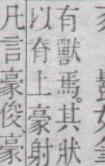 有獸焉。其狀
以脊上豪射
凡言豪俊豪